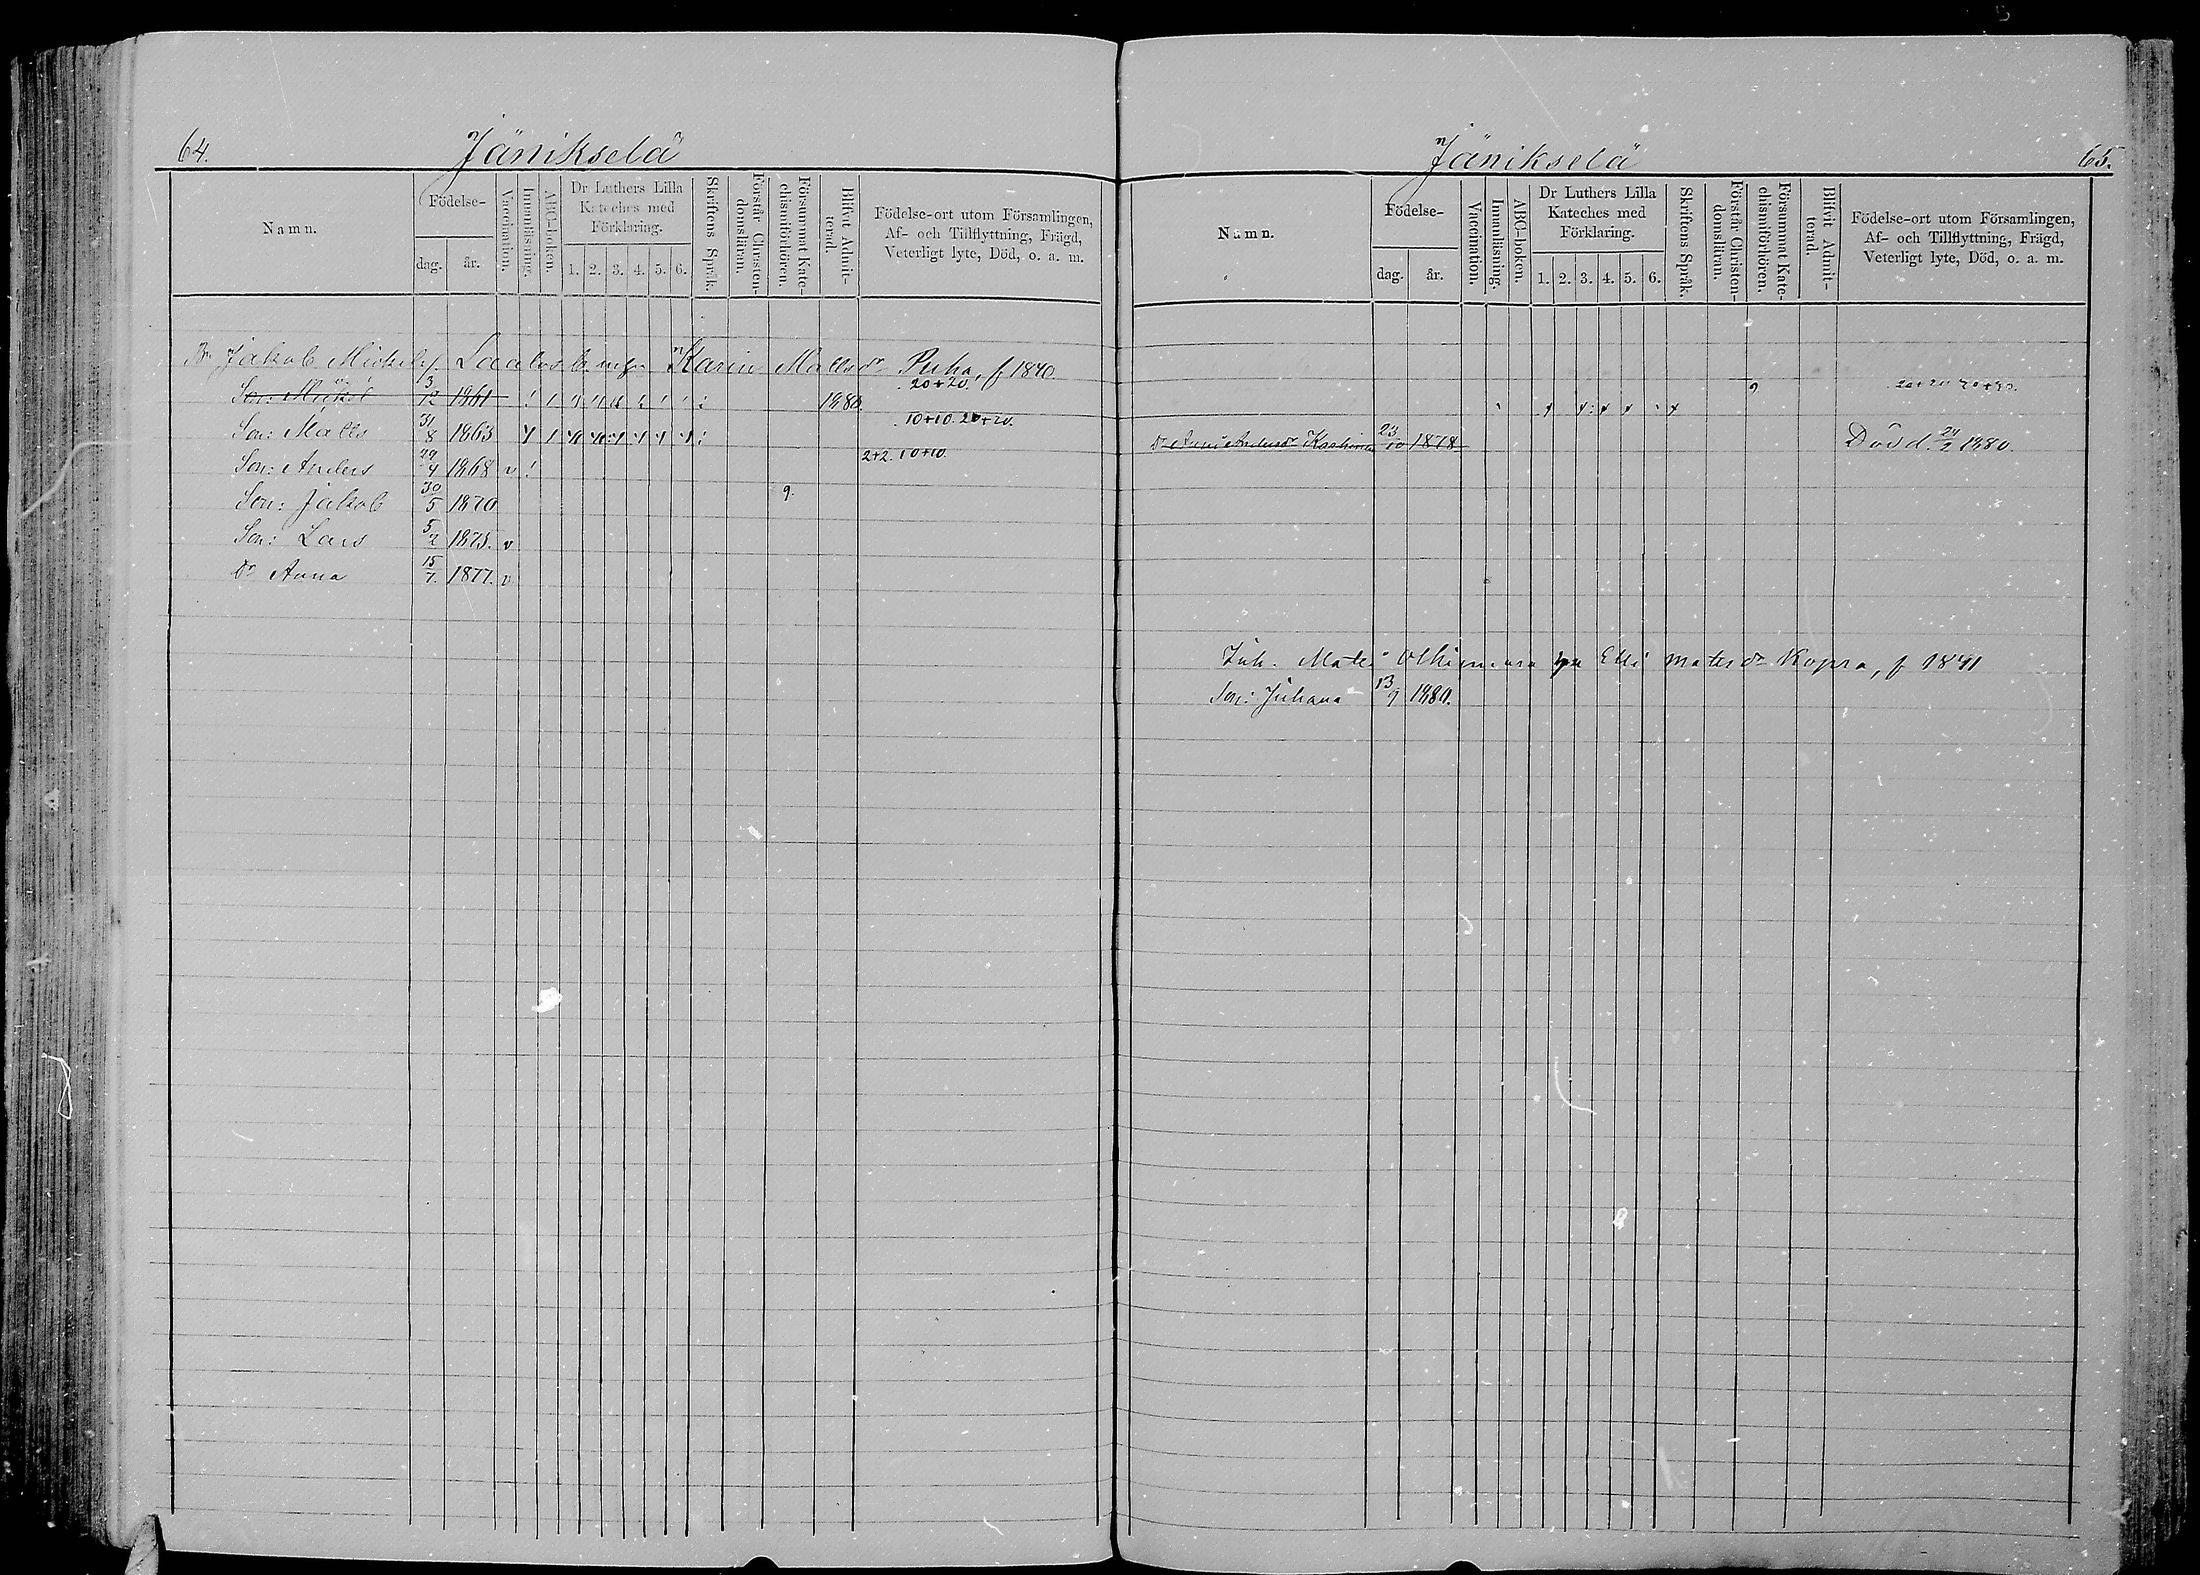 64. Jänikselä
Namn. Födelse- dag. år. Vaccination. Innanläsning. ABC-boken. Dr Luthers Lilla Kateches med Förklaring. 1. 2. 3. 4. 5. 6. Skriftens Språk. Förstår Christendomsläran. Försummat Katechismiförhören. Blifvit Admitterad. Födelse-ort utom Församlingen, Af- och Tillflyttning, Frägd, Veterligt lyte, Död, o. a. m.
Jakob Mickelsf. Karin Mattsdr Puha, f 1840
Son: Mickel 3/12 1861 1880. 20+20.
Son: Matts 31/8 1863 10+10. 20+20.
Son: Anders 29/4 1868 v 2+2. 10+10.
Son: Jakob 30/5 1870 9.
Son: Lars 5/2 1875. v
Dr Anna 15/7. 1877. v
Jänikselä 65.
Namn. Födelse- dag. år. Vaccination. Innanläsning. ABC-boken. Dr Luthers Lilla Kateches med Förklaring. 1. 2. 3. 4. 5. 6. Skriftens Språk. Förstår Christendomsläran. Försummat Katechismiförhören. Blifvit Admitterad. Födelse-ort utom Församlingen, Af- och Tillflyttning, Frägd, Veterligt lyte, Död, o. a. m.
9 20+20
Dr Anni Andersdr 23/10 1878 Död. 24/2 1880.
Inh. Elli Matesdr Kopra, f 1841
Son: Juhana 13/9 1880.